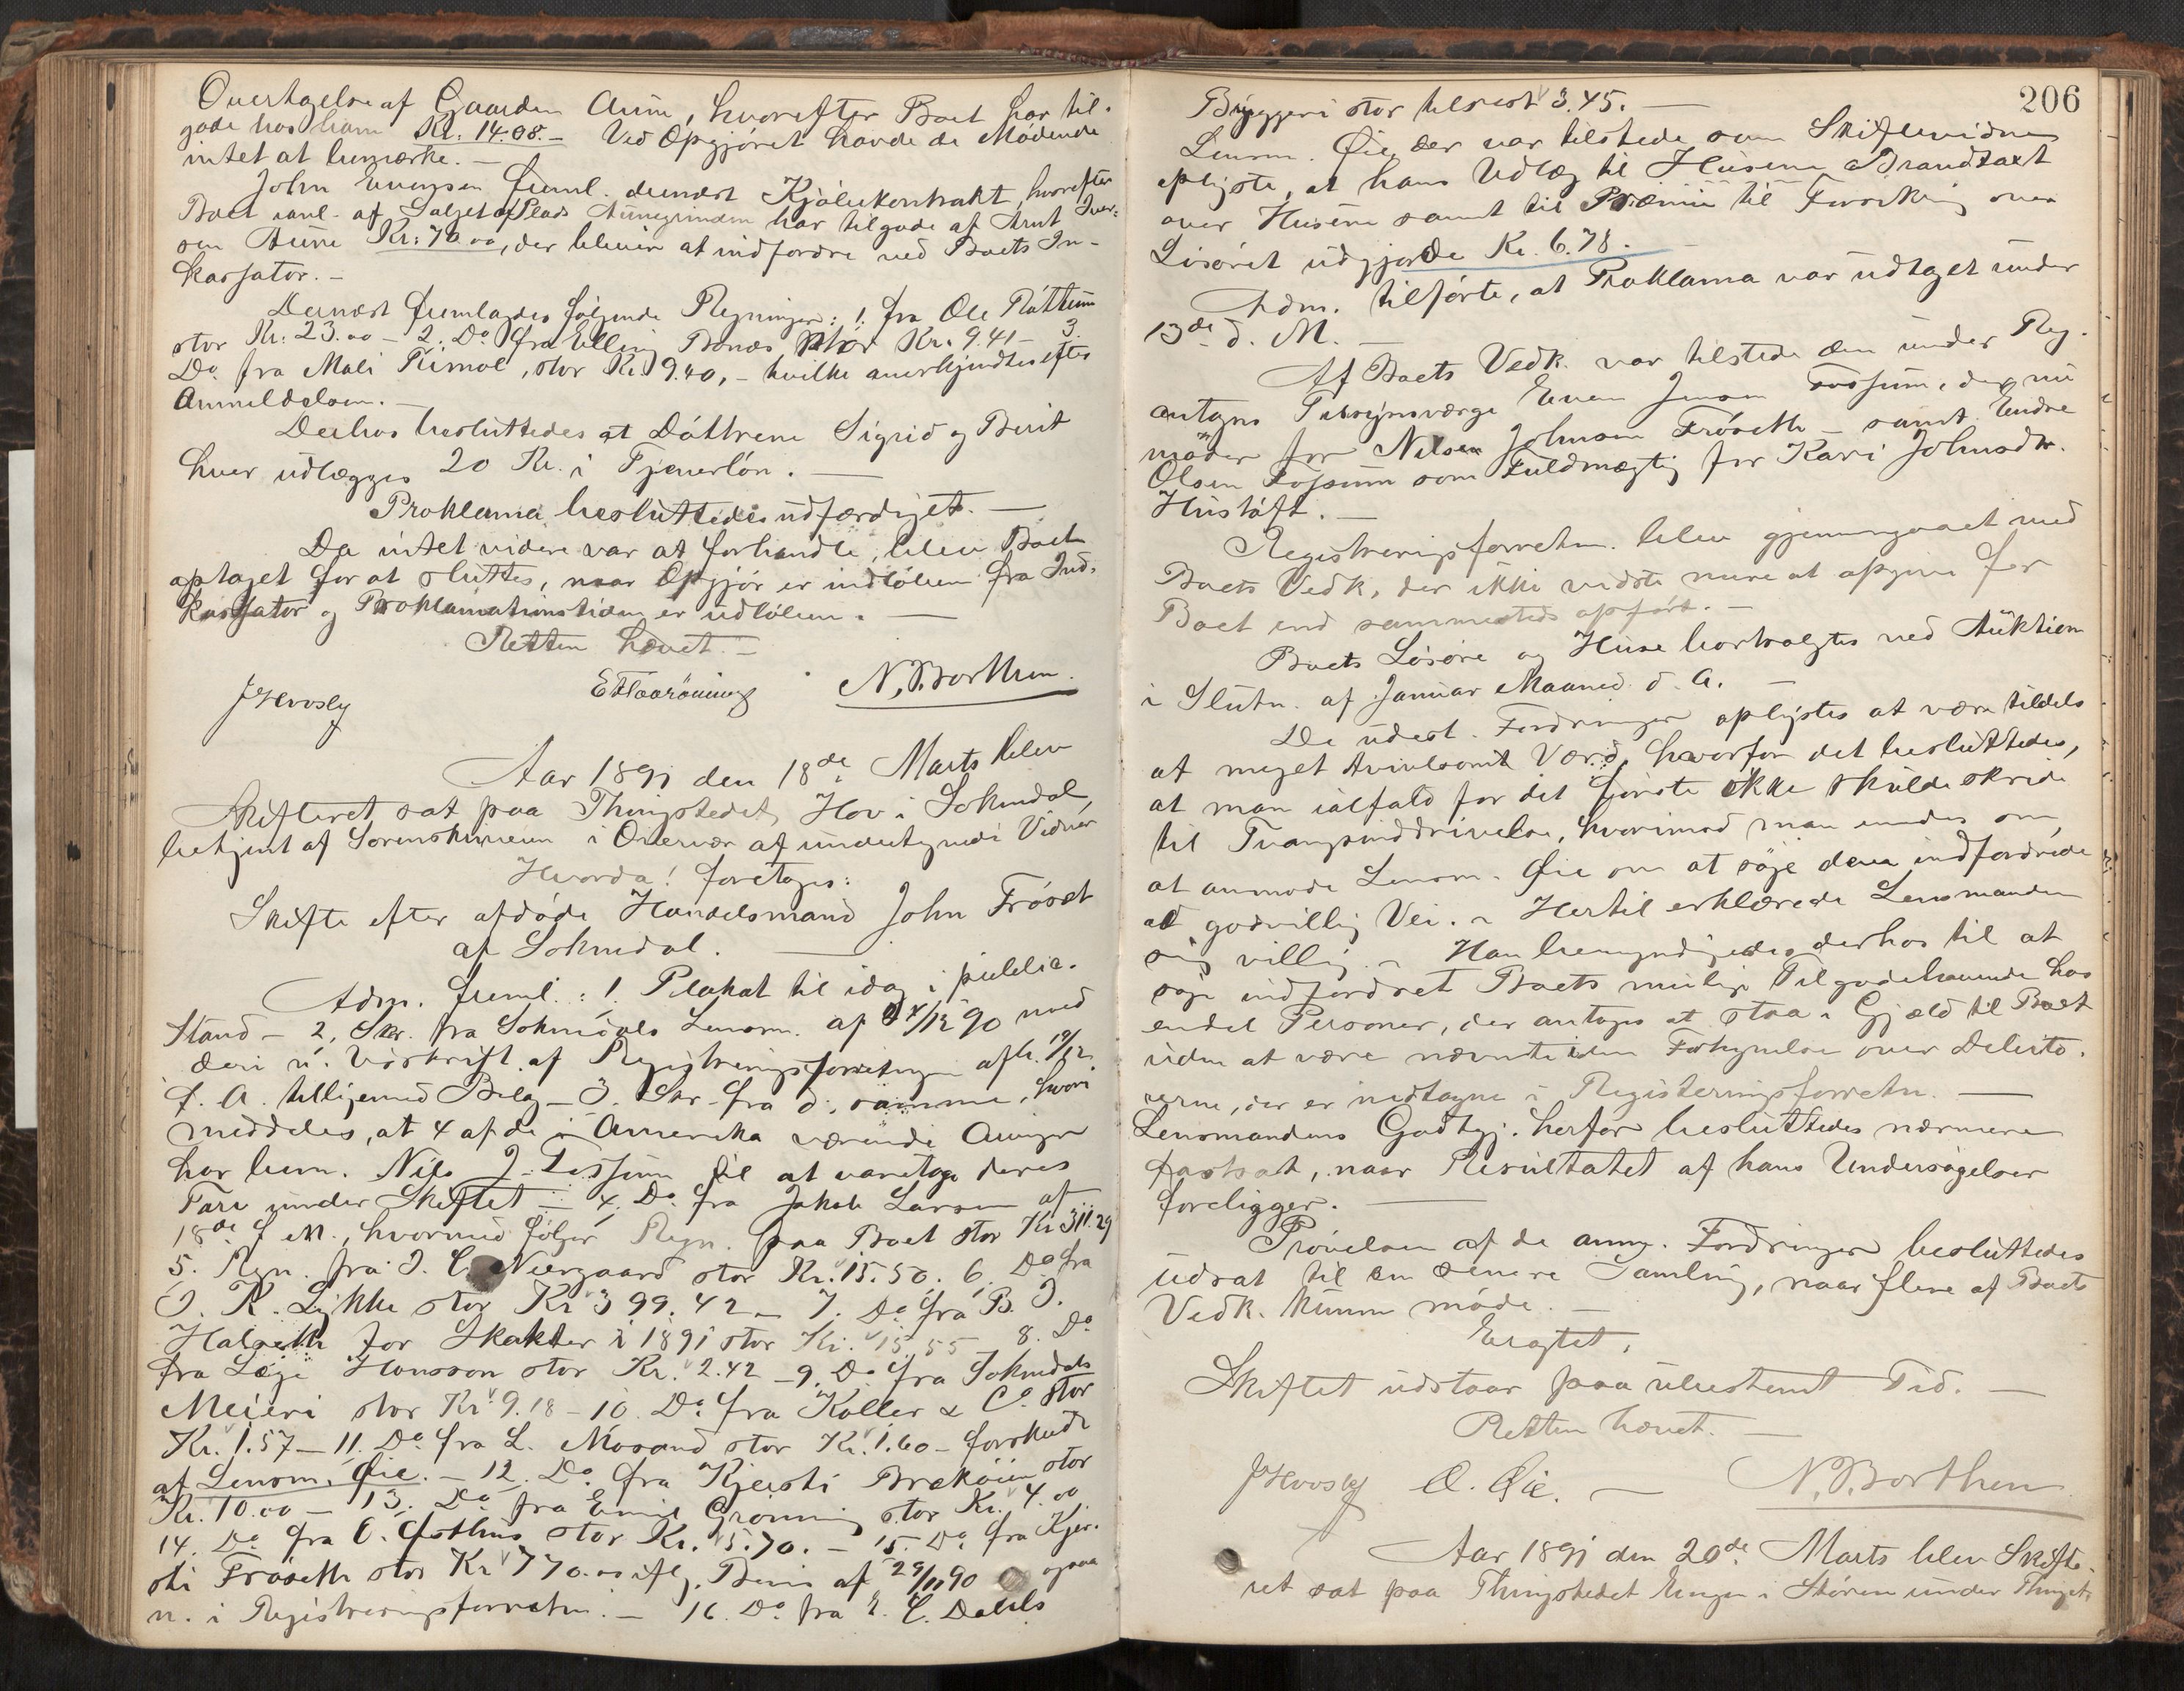 Overtagelse af Gaarden Aune, hvorefter Boet har til-
gode hos ham Kr. 14.08.- Ved Opgjöret havde de Mödende
intet at bemærke. -
John Evensen freml. dernæst Kjöbekontrakt, hvorefter
Boet ianl. af Salget af Plads Aunegrinden har tilgode af Arnt Iver-
sen Aune Kr: 70.00, der blev at indfordre ved Boets In-
kassator. -
Dernæst fremlagdes fölgende Regninger: 1. fra Ole
stor Kr: 23.00 - 2. Do fra Elling Bonæs stor Kr. 9.41 - 3.
Do fra Mali, stor Kr. 9.40, - hvilke anerkjendtes efter
Anmeldelsen. -
Derhos besluttedes at Döttrene Sigrid og Berit
hver udlægges 20 Kr. i Tjenerlön. -
Proklama besluttedes udfærdiget. -
Da intet videre var at forhandle, blev Boet
optaget for at sluttes, naar Opgjör er indlöben fra Ind-
kassator og Proklamationstiden er udlöben. -
Retten hævet. -
JHovsly N. Borthen.
Aar 1891 den 18de Marts blev
Skifteret sat paa Thingstedet Hov i Soknedal,
betjent af Sorenskriveren i Overvær af undertegnede Vidner
Hvorda! foretoges:
Skifte efter afdöde Handelsmand John Fröset
af Soknedal. -
Adm. freml.: 1. Plakat til idag i public.
Stand - 2, Skr. fra Soknedals Lensm. af /12 90 med
deri n. Udskrift af Registreringsforretningen afh. /12
f. A. tilligemed Bilag - 3. Skr. fra d. samme, hvori
meddeles, at 4 af de i Amerika værende Arvinger
har bem. Nils J. Fossum til at varetage deres
Tarv under Skiftet - 4. Do fra Jakob Larsen af
18de f. M., hvormed fölger Regn. paa Boet stor Kr 311.29
5. Regn. fra J. C. Neergaard stor Kr. 15.50. 6. Do fra
J. K. Lykke stor Kr 399.42 - 7. Do fra B. J.
Halseth for Skatter i 1891 stor Kr. 15.55 8. Do
fra Læge Hansson stor Kr. 2.42 - 9. Do fra Soknedals
Meieri stor Kr 9.18 - 10. Do fra Koller & Co. stor
Kr. 1.57 - 11. Do fra L. Mosand stor Kr. 1.60 - forskudt
af Lensm. Öie. - 12. Do fra Kjersti stor
Kr. 10.00 - 13. Do fra Emil Grönning stor Kr. 4.00
14. Do fra O. Østhus stor Kr. 5.70. - 15. Do fra Kjer-
sti Fröseth stor Kr 770.00 iflg. Bevis af 29/11 90 ogsaa
n. i Registreringsforretn. - 16. Do fra E. C. Dahls
206
Bryggeri stor tilrest 3.45. -
Lensm. Öie, der var tilstede som Skiftevidne
oplyste, at hans Udlæg til Husene Brandtaxt
over Husene samt til Præmie til Forsikring over
Lösöret udgjorde Kr. 6.78. -
Adm. tilförte, at Proklama var udtaget under
13de d. M. -
Af Boets Vedk. var tilstede den under Reg.
antagne Tilsynsværge Even Jensen Fossum, der nu
möder for Nilsen Johnsen Fröseth - samt Endre
Olsen Fossum som Fuldmægtig for Kari Johnsdtr.
Hustöft. -
Registreringsforretn. blev gjennemgaaet med
Boets Vedk., der ikke vidste mere at opgive for
Boet end sammesteds opfört. -
Boets Lösöre og Huse bortsolgtes ved Auktion
i Slutn. af Januar Maaned d. A. -
De udest. Fordringer oplystes at være tildels
af meget tvivlsomt Værd, hvorfor det besluttedes,
at man ialfald for det förste ikke skulde skride
til Tvangsinddrivelse, hvorimod man enedes om
at anmode Lensm. Öie om at söge dem indfordrede
ad godvillig Vei. - Hertil erklærede Lensmanden
sig villig. - Han bemyndigedes derhos til at
söge indfordret Boets mulige Tilgodehavende hos
endel Personer, der antages at staa i Gjæld til Boet
uden at være nævnte i den Fortegnelse over Debito-
rerne, der er indtagne i Registreringsforretn. -
Lensmandens Godtgj. herfor besluttedes nærmere
fastsat, naar Resultatet af hans Undersögelser
foreligger. -
Prövelsen af de anm. Fordringer besluttedes
udsat til en senere Samling, naar flere af Boets
Vedk. kunne möde. -
Eragtet,
Skiftet udstaar paa ubestemt Tid. -
Retten hævet. -
JHovsly O. Öie. - N. Borthen
Aar 1891 den 20de Marts blev Skifte-
ret sat paa Thingstedet Engen i Stören under Thinget,